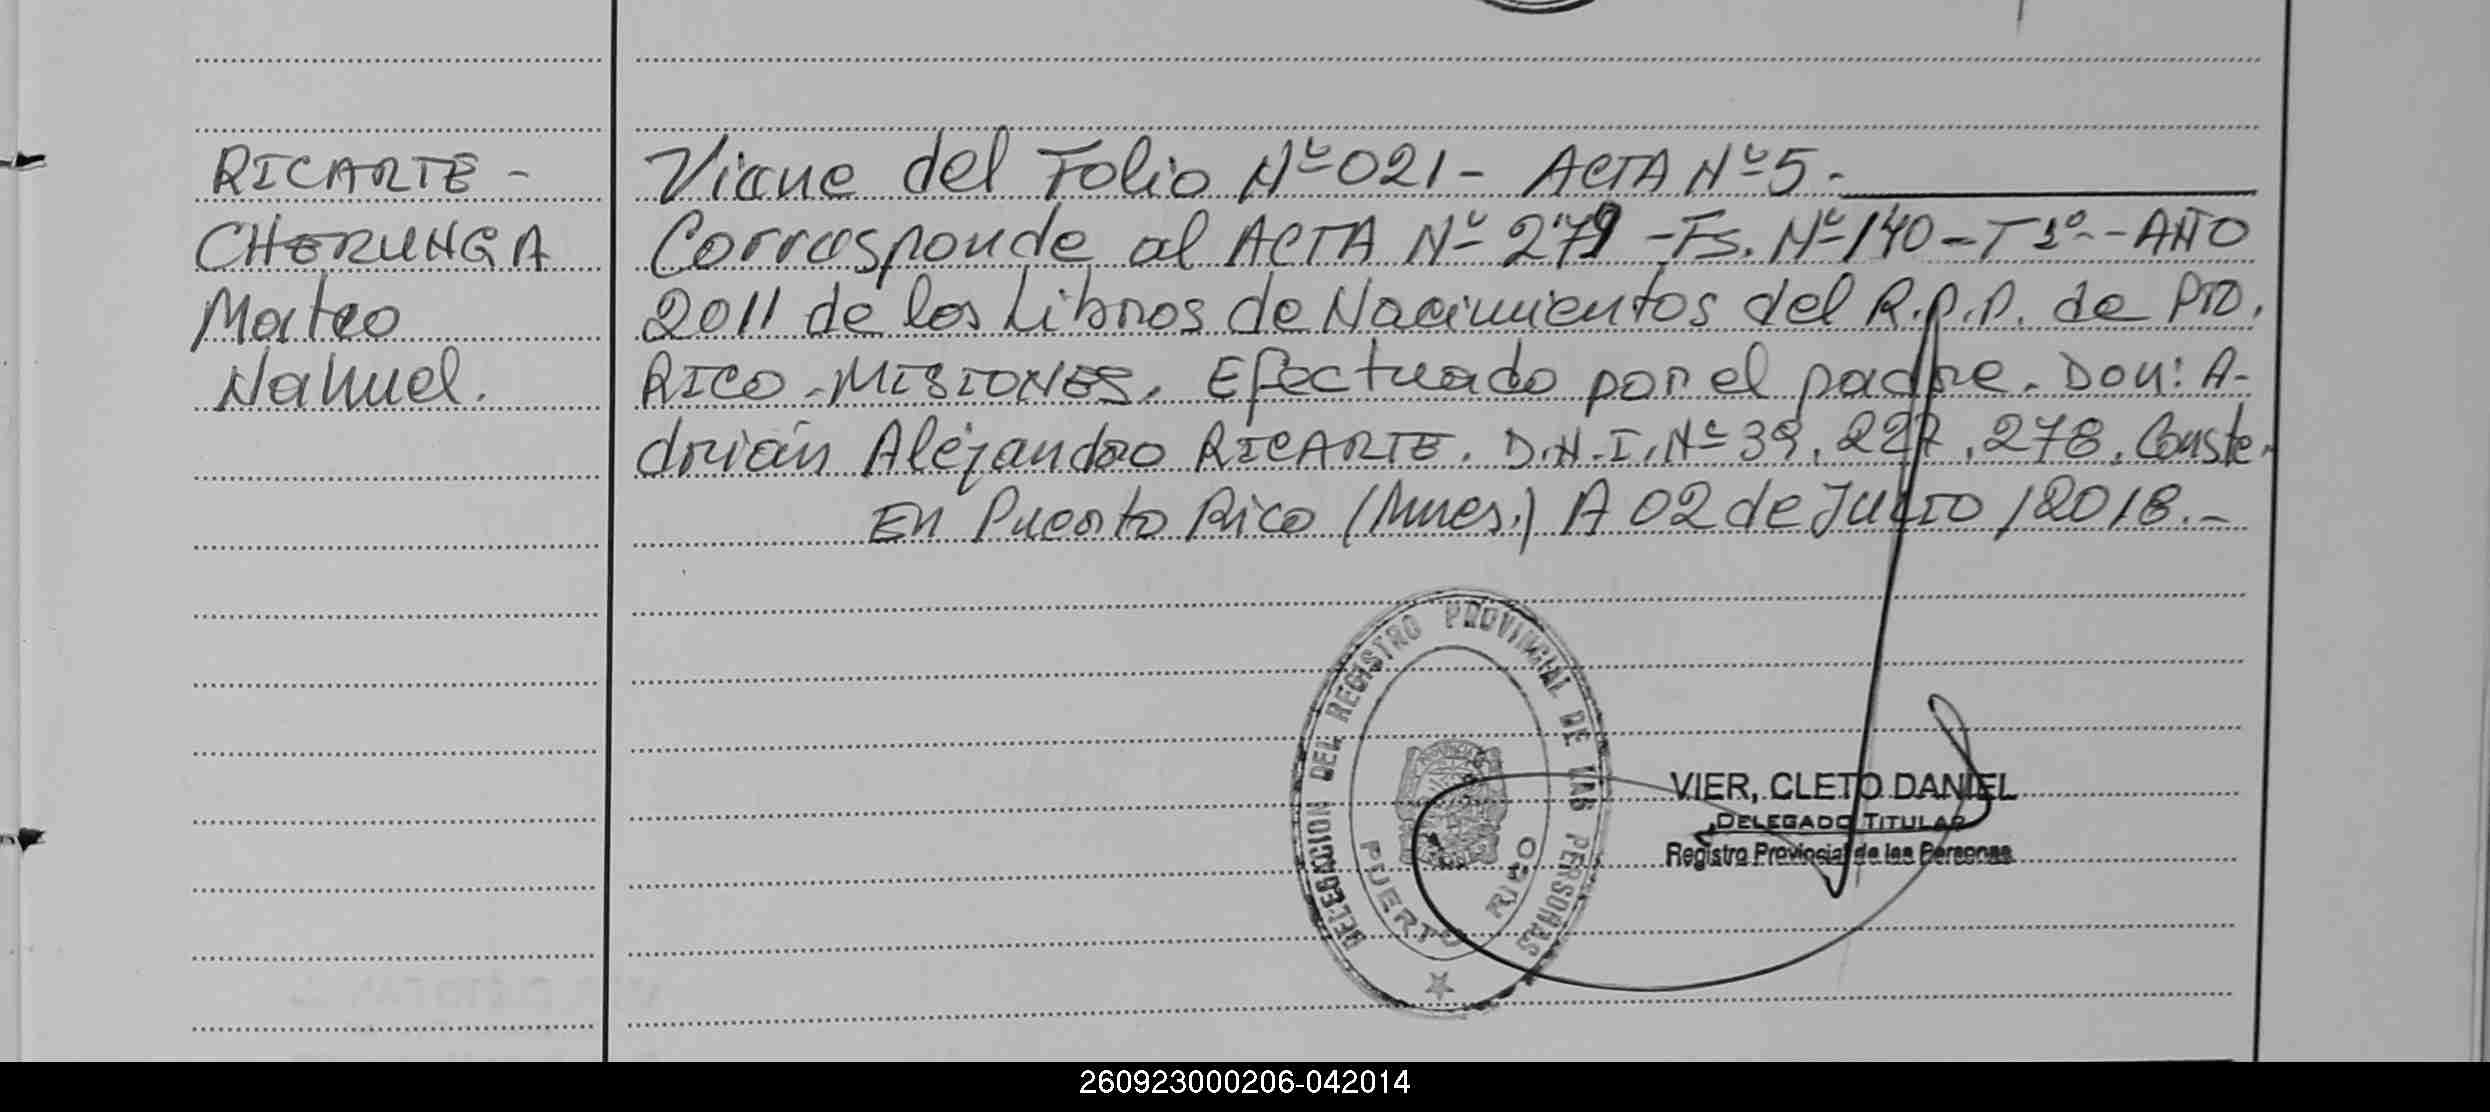 RICARTE -
CHERUNGA
Mateo
Nahuel.
Viene del Folio Nº 021 - ACTA Nº 5 -
Corresponde al ACTA Nº 279 - Fs. Nº 140 - T 1º - AÑO
2011 de los Libros de Nacimientos del R.P.P. de PTO.
RICO - MISIONES. Efectuado por el padre. Don: A-
drián Alejandro RICARTE. D.N.I. Nº 39.227.278. Conste.
En Puerto Rico (Mnes.) A 02 de JULIO / 2018.-
DELEGACION DEL REGISTRO PROVINCIAL DE LAS PERSONAS
PUERTO RICO
VIER, CLETO DANIEL
DELEGADO TITULAR
Registro Provincial de las Personas
260923000206-042014